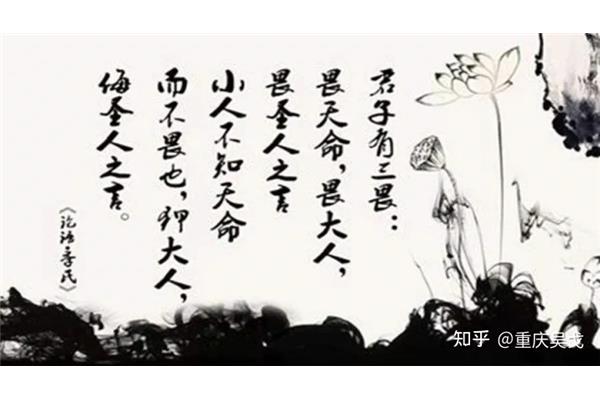 君子有三畏：
畏天命，畏大人，
畏圣人之言
小人不知天命
而不畏也，狎大人，
侮圣人之言。
《论语·季氏》
知乎 @重庆吴戈